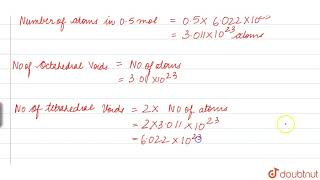 Number of atoms in 0.5 mol = 0.5 x 6.022 x 10²³
= 3.011 x 10²³ atoms
No of Octahedral Voids = No of atoms
= 3.011 x 10²³
No of tetrahedral Voids = 2 x No of atoms
= 2 x 3.011 x 10²³
= 6.022 x 10²³
doubtnut